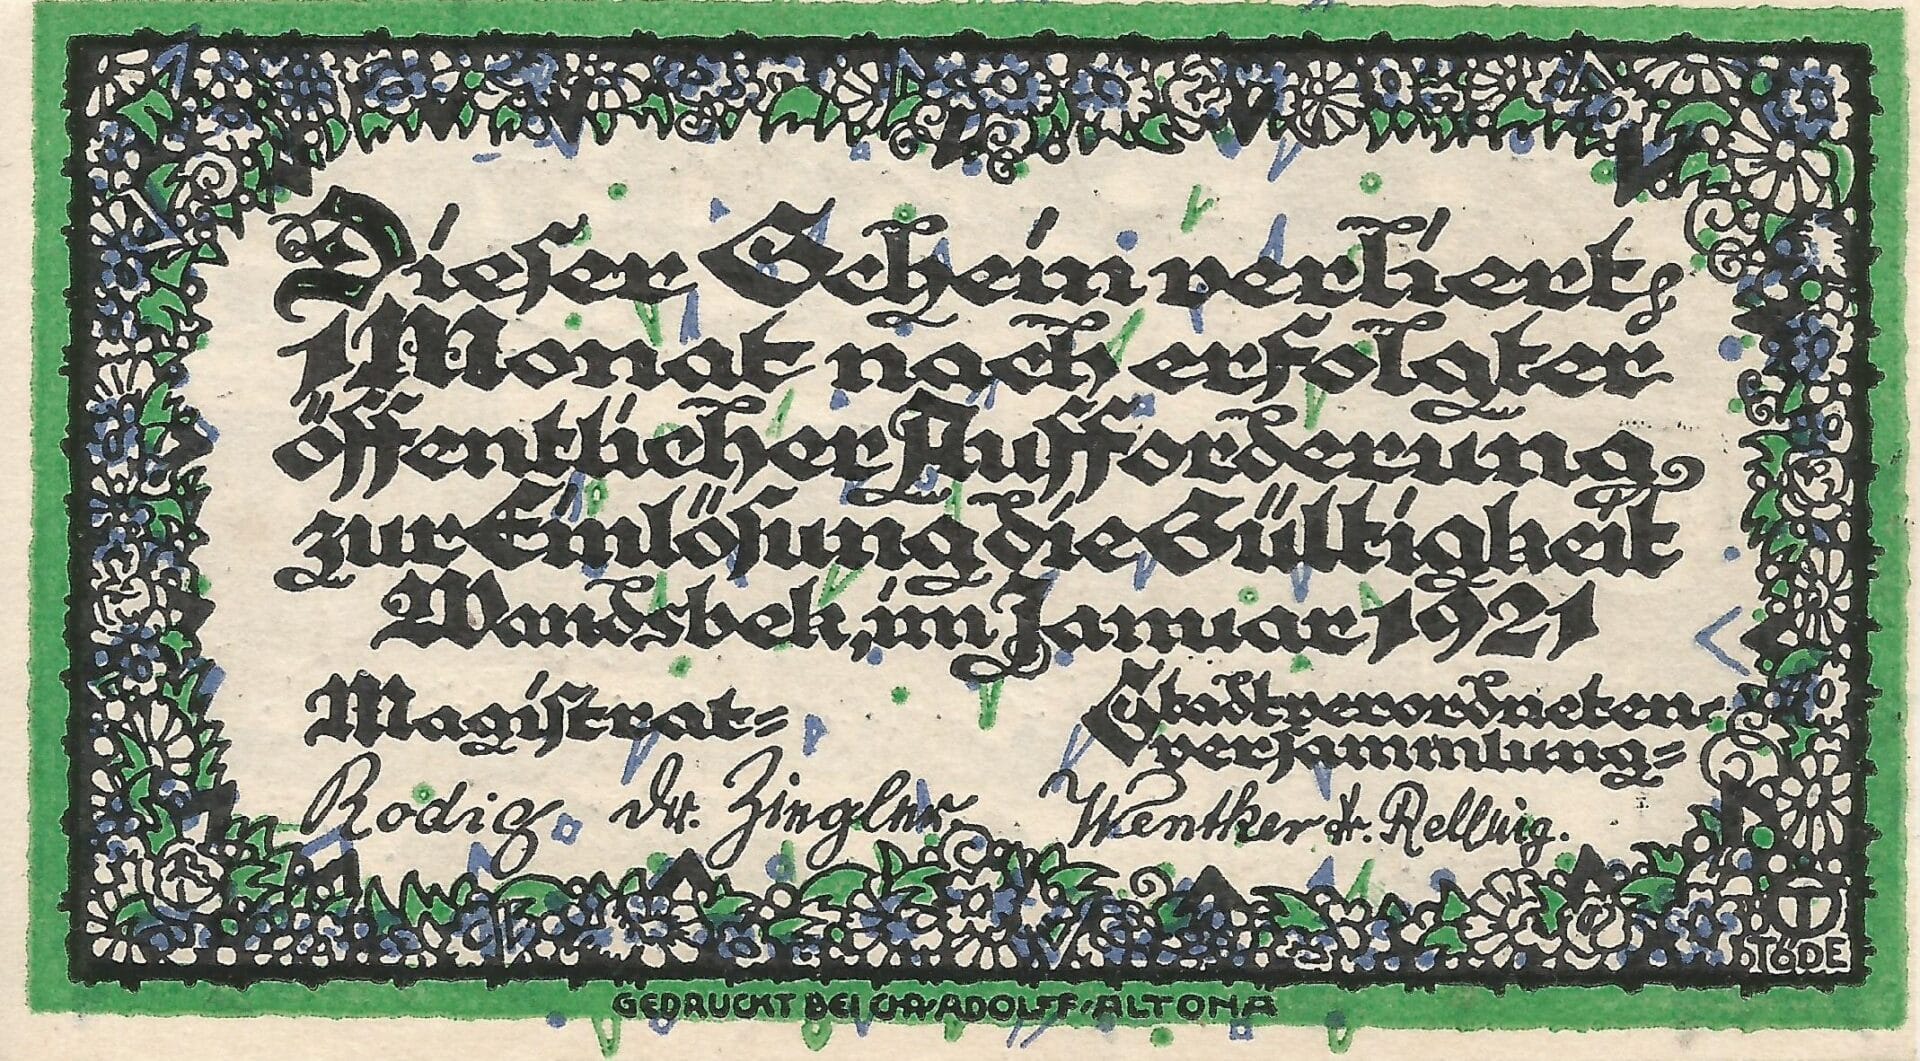 Dieser Schein verliert,
1 Monat nach erfolgter
öffentlicher Aufforderung
zur Einlösung die Gültigkeit
Wandsbek, im Januar 1921
Magistrat=
Stadtverordneten-
versammlung=
Rodig. Dr. Ziegler.
Wentker Dr. Rellwig.
TÖDE
GEDRUCKT BEI CHR·ADOLFF·ALTONA